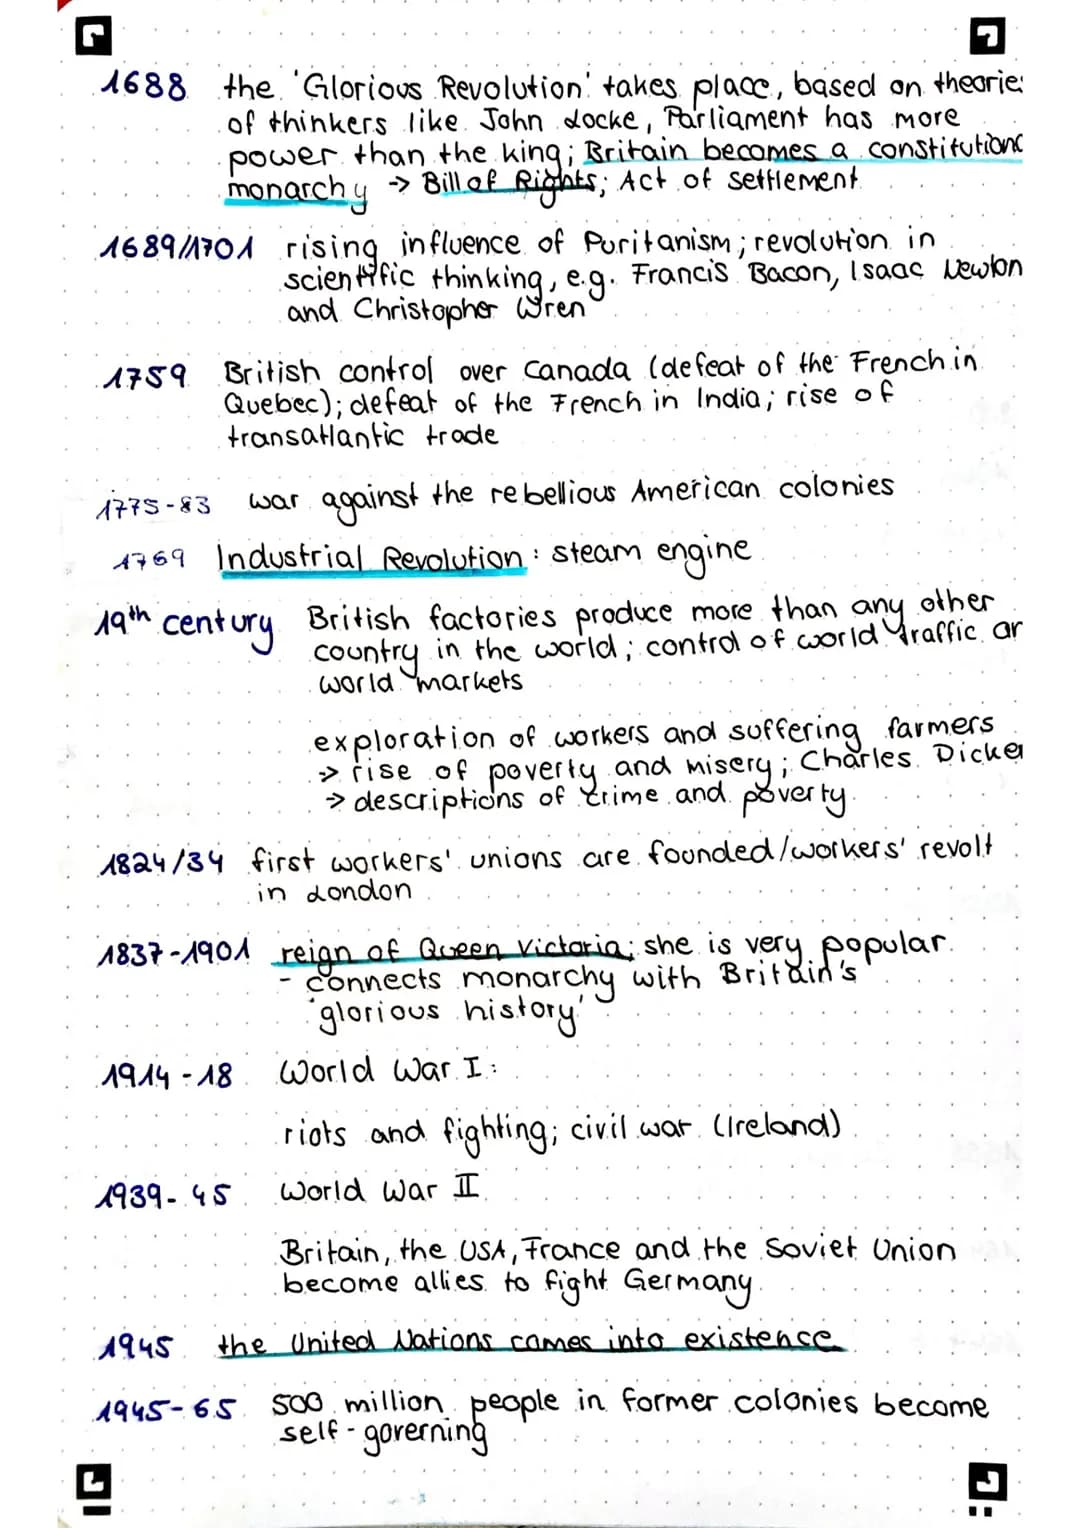 1688 the 'Glorious Revolution' takes place, based on theories
of thinkers like John Locke, Parliament has more
power than the king; Britain becomes a constitutional
monarchy -> Bill of Rights; Act of settlement
1689/1701 rising influence of Puritanism; revolution in
scientific thinking, e.g. Francis Bacon, Isaac Newton
and Christopher Wren
1759 British control over Canada (defeat of the French in
Quebec); defeat of the French in India; rise of
transatlantic trade
1775-83 war against the rebellious American colonies
1769 Industrial Revolution: steam engine
19th century British factories produce more than any other
country in the world; control of world traffic an
world markets
exploration of workers and suffering farmers
-> rise of poverty and misery; Charles Dicke
-> descriptions of crime and poverty
1824/34 first workers' unions are founded/workers' revolt
in London
1837-1901 reign of Queen Victoria; she is very popular
- connects monarchy with Britain's
'glorious history'
1914-18 World War I:
riots and fighting; civil war (Ireland)
1939-45 World War II
Britain, the USA, France and the Soviet Union
become allies to fight Germany
1945 the United Nations comes into existence
1945-65 500 million people in former colonies become
self-governing